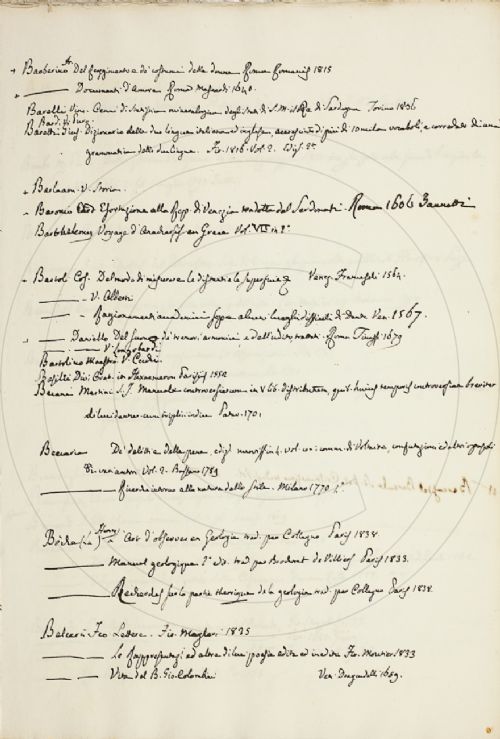 + Barberino Del Reggimento e de' costumi delle donne Roma Romanis 1815
+ ——— Documenti d'Amore Roma Mascardi 1640.
Barelli Vinc. Cenni di Statistica mineralogica degli stati di S. M. il Re di Sardegna Torino 1836
Baretti Gius. Dizionario delle due lingue italiana ed inglese, accresciuto di più di 10 mila vocaboli, e corredato di una
grammatica delle due lingue. Fir. 1816. Vol. 2.
+ Barlaam. v. Storia.
+ Baronio Esortazione alla Rep. di Venezia tradotta dal Serdonati. Roma 1606 Zannetti
Barthelemy Voyage d'Anacharsis en Grece Vol. VII in 8°
+ Bartoli Cos. Del modo di misurare le distantie le superficie Venez. Franceschi 1564.
——— v. Alberti
——— Ragionamenti accademici sopra alcuni luoghi difficili di Dante Ven. 1567.
+ ——— Daniello Del suono de' tremori armonici e dell'udito trattati. Roma 1679
——— v. Longobardi
Bartolino Maestro V.
Basilii Div. Parisiis 1556
Becani Martini S. J. Manuale controversiarum in V lib. distributum, quo huius temporis controversiae breviter
dilucidantur cum triplici indice 1701
Beccaria De' delitti e delle pene, vol. coi comm. di Voltaire, confutazioni ed altri opuscoli
di vari autori Vol. 2. Bassano 1789
——— Ricerche intorno alla natura dello stile. Milano 1770
Bèche (la) Henry Art d'observer en Geologie trad. par Collegno Paris 1838.
——— Manuel geologique 2e ed. trad. par Brochant de Villiers Paris 1833.
——— Recherches sur la partie théorique de la geologie trad. par Collegno Paris 1838.
Belcari Feo Lettere. Fir. Magheri 1825
——— Le Rappresentazioni ed altre di lui poesie edite ed inedite Fir. Moutier 1833
——— Vita del B. Gio. Colombini Ven. 1659.